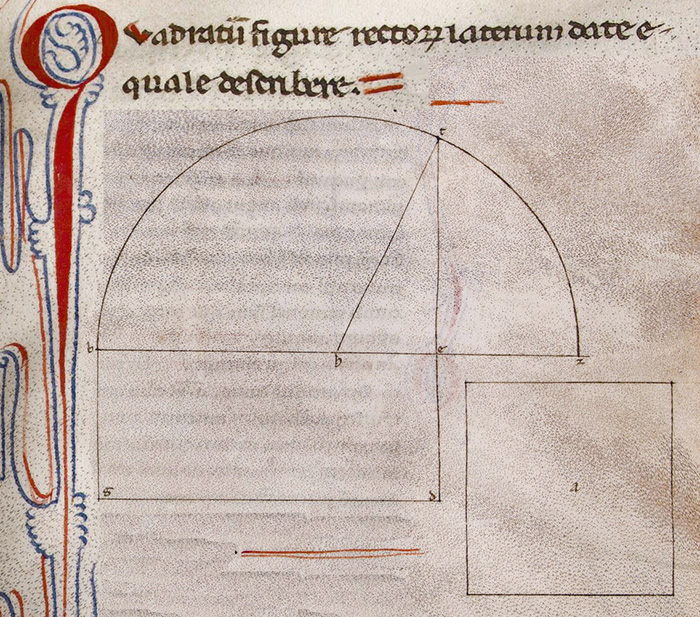 Quadratū figure rectoꝝ laterum date e-
quale describere.
t
b
h
e
z
a
g
d